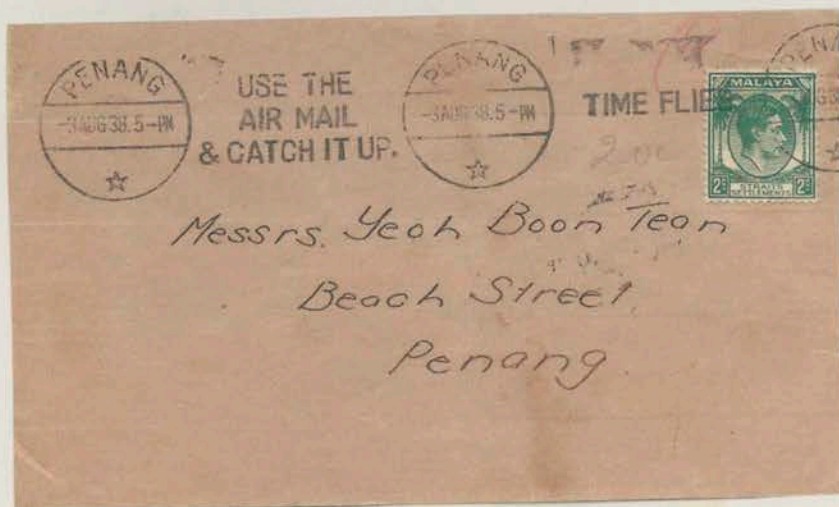 PENANG
-3AUG38.5-PM
USE THE
AIR MAIL
& CATCH IT UP.
PENANG
-3AUG38.5-PM
TIME FLIES
PENA
MALAYA
2c 2c
STRAITS
SETTLEMENTS
200
Messrs. Yeoh Boon Tean
Beach Street,
Penang.